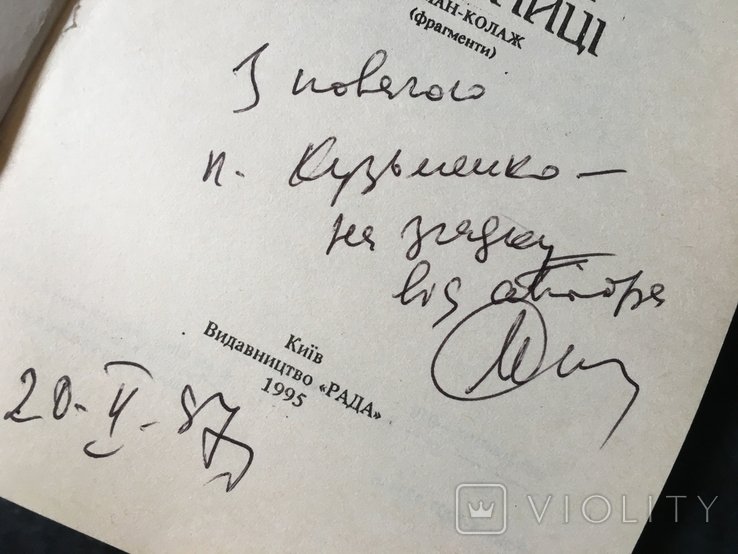 НИЦІ
АН-КОЛАЖ
(фрагменти)
З повагою
п. Кузьменко —
на згадку
від автора
Київ
Видавництво «РАДА»
1995
20-II-97
VIOLITY